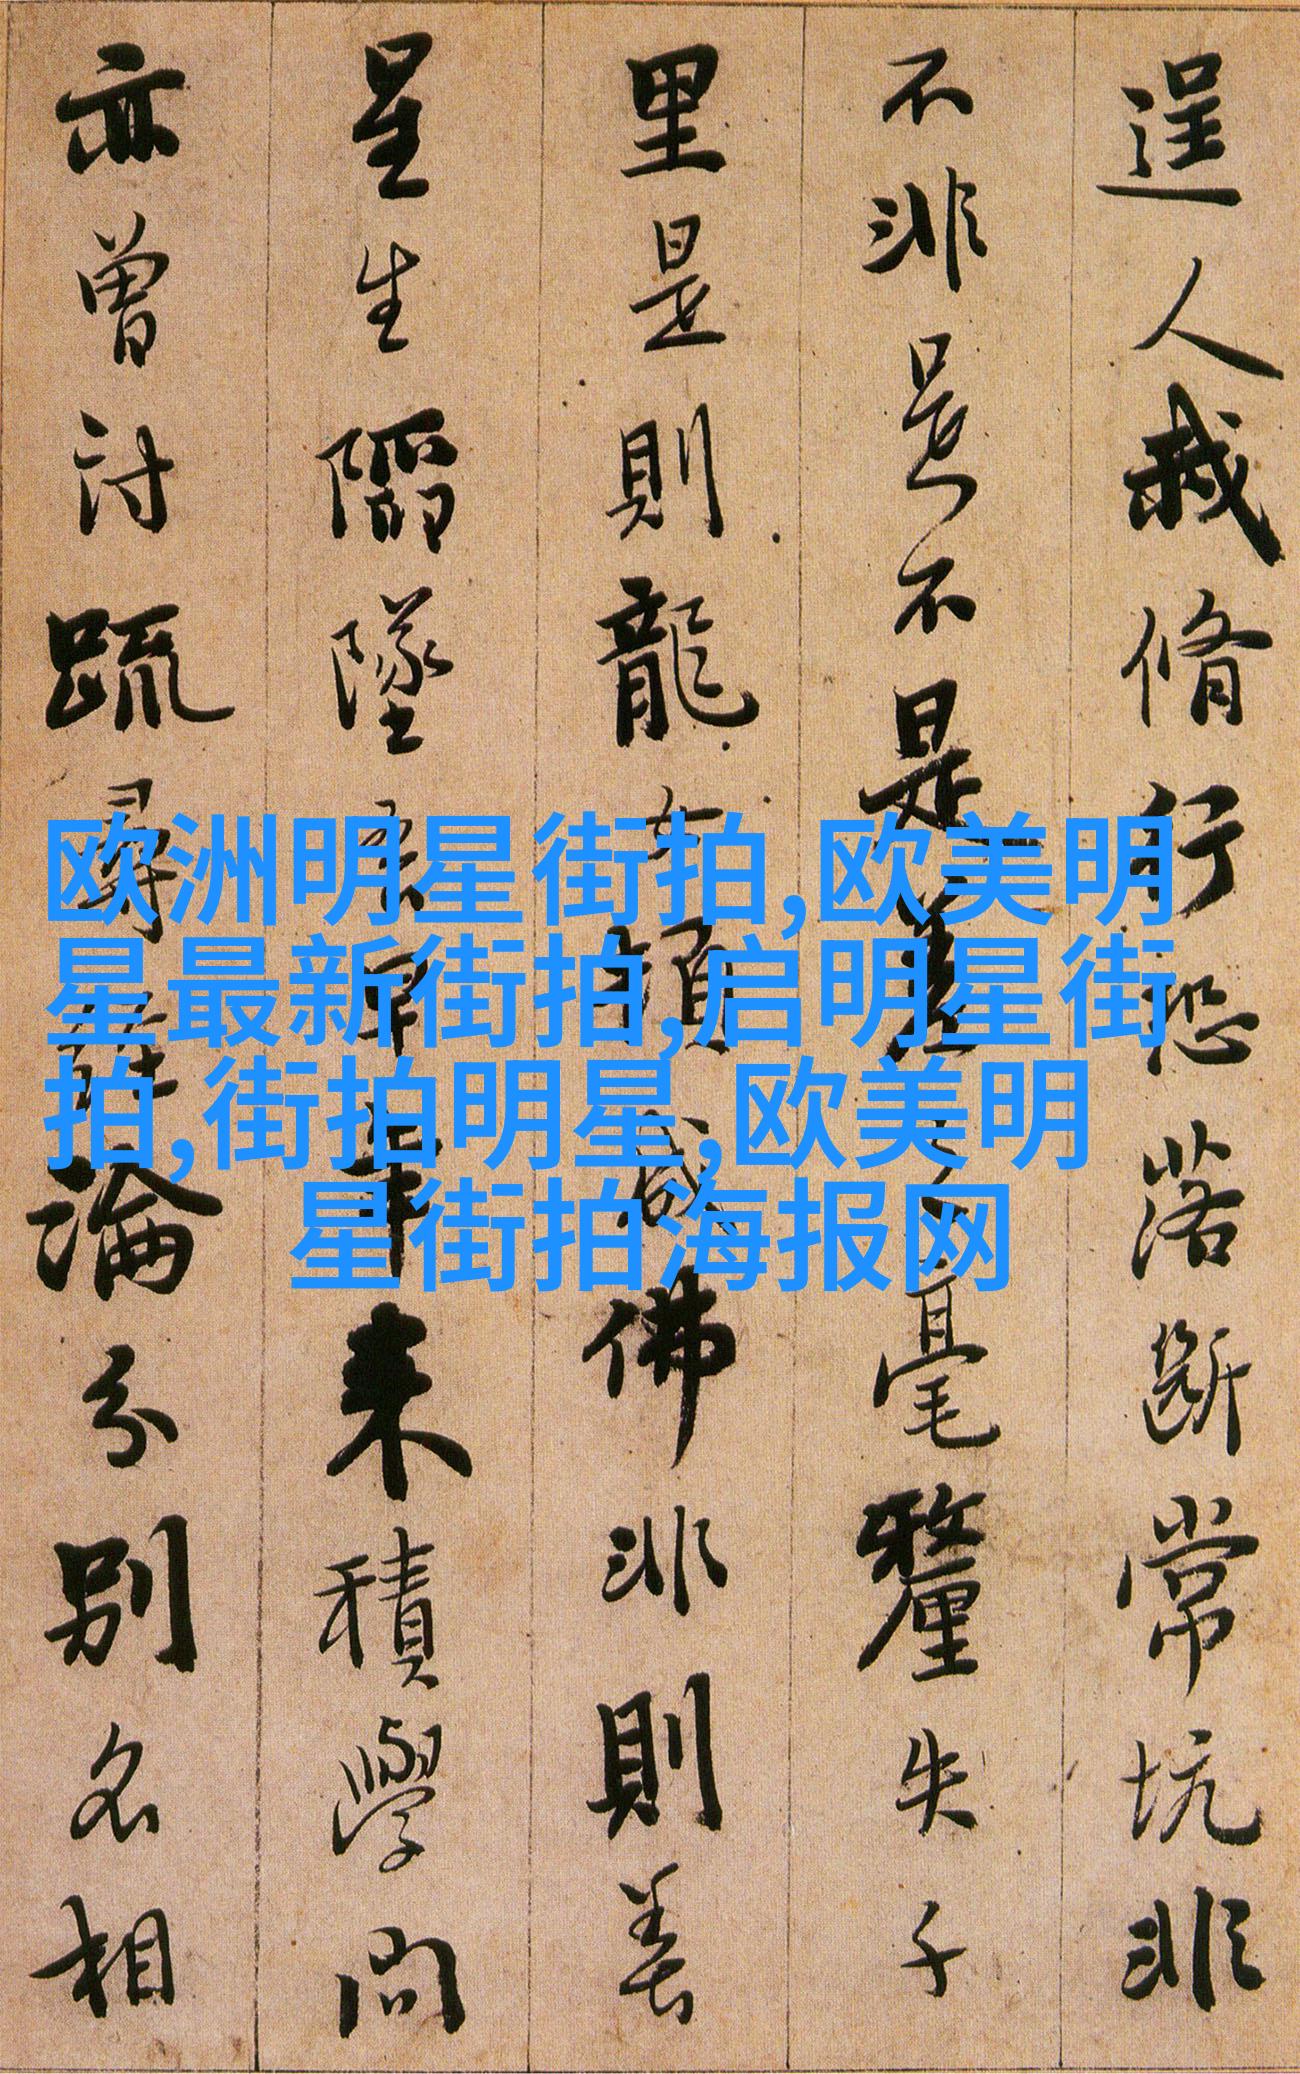 逞人我脩行恐落斷常坑非
不非是不是差之毫釐失千
里是則龍女頓成佛非則善
星生陷墜吾早年来積學問
亦曾討疏尋經論分別名相
欧洲明星街拍,欧美明
星最新街拍,启明星街
拍,街拍明星,欧美明
星街拍海报网